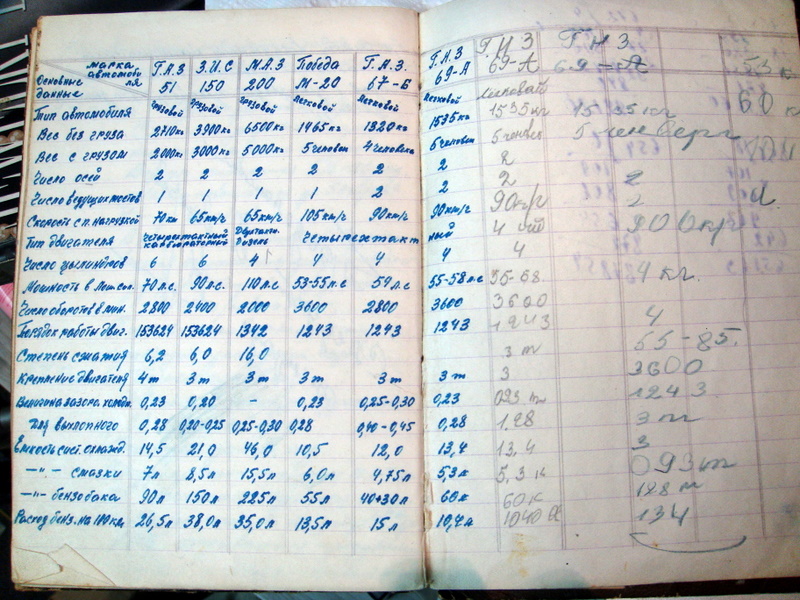 маска автомобиля Г.А.З З.И.С М.А.З Победа Г.А.З. Г.А.З Г.А.З Г.А.З.
Основные данные 51 150 200 М-20 67-Б 69-А 69-А 69-А 53
Тип автомобиля грузовой грузовой грузовой легковой легковой легковой
Вес без груза 2710кг 3900кг 6500кг 1465кг 1320кг 1535кг 1535кг 1535кг 60 к
Вес с грузом 2000кг 3000кг 5000кг 5человек 4человека 5человек
Число осей 2 2 2 2 2 2 2
Число ведущих мостов 1 1 1 1 2 2 2 2
Скорость с п. нагрузкой 70км 65км/ч 65км/ч 105км/ч 90км/ч 90км/ч 90км/ч 2
Тип двигателя четырехтактный карбюраторный Двухтактн. Дизель четырехтакт ный
Число цылиндров 6 6 4 4 4 4 4
Мощность в лш.сил. 70л.с. 90л.с. 110л.с 53-55л.с 54л.с 55-58л.с 4 кг.
Число оборотов в мин. 2800 2400 2000 3600 2800 3600 3600
Порядок работы двиг. 153624 153624 1342 1243 1243 1243 1243 4
Степень сжатия 6,2 6,0 16,0 3т 55-85.
Крепление двигателя 4т 3т – 3т 3т 3т 3 3600
Величина зазора холодн. 0,23 0,20 – 0,23 0,25-0,30 0,23 023 1243
для выхлопного 0,28 0,20-025 0,25-0,30 0,28 0,40-0,45 0,28 1,28 3т
Емкость сист. охлажд. 14,5 21,0 46,0 10,5 12,0 13,4 13,4 3
–"– смазки 7л 8,5л 15,5л 6,0л 4,75л 5,3к 5,3к 093т
–"– бензобака 90л 150л 225л 55л 40+30л 60к 60к 128т
Расход бенз. на 100км 26,5л 38,0л 35,0л 13,5л 15л 10,4л 1040 134